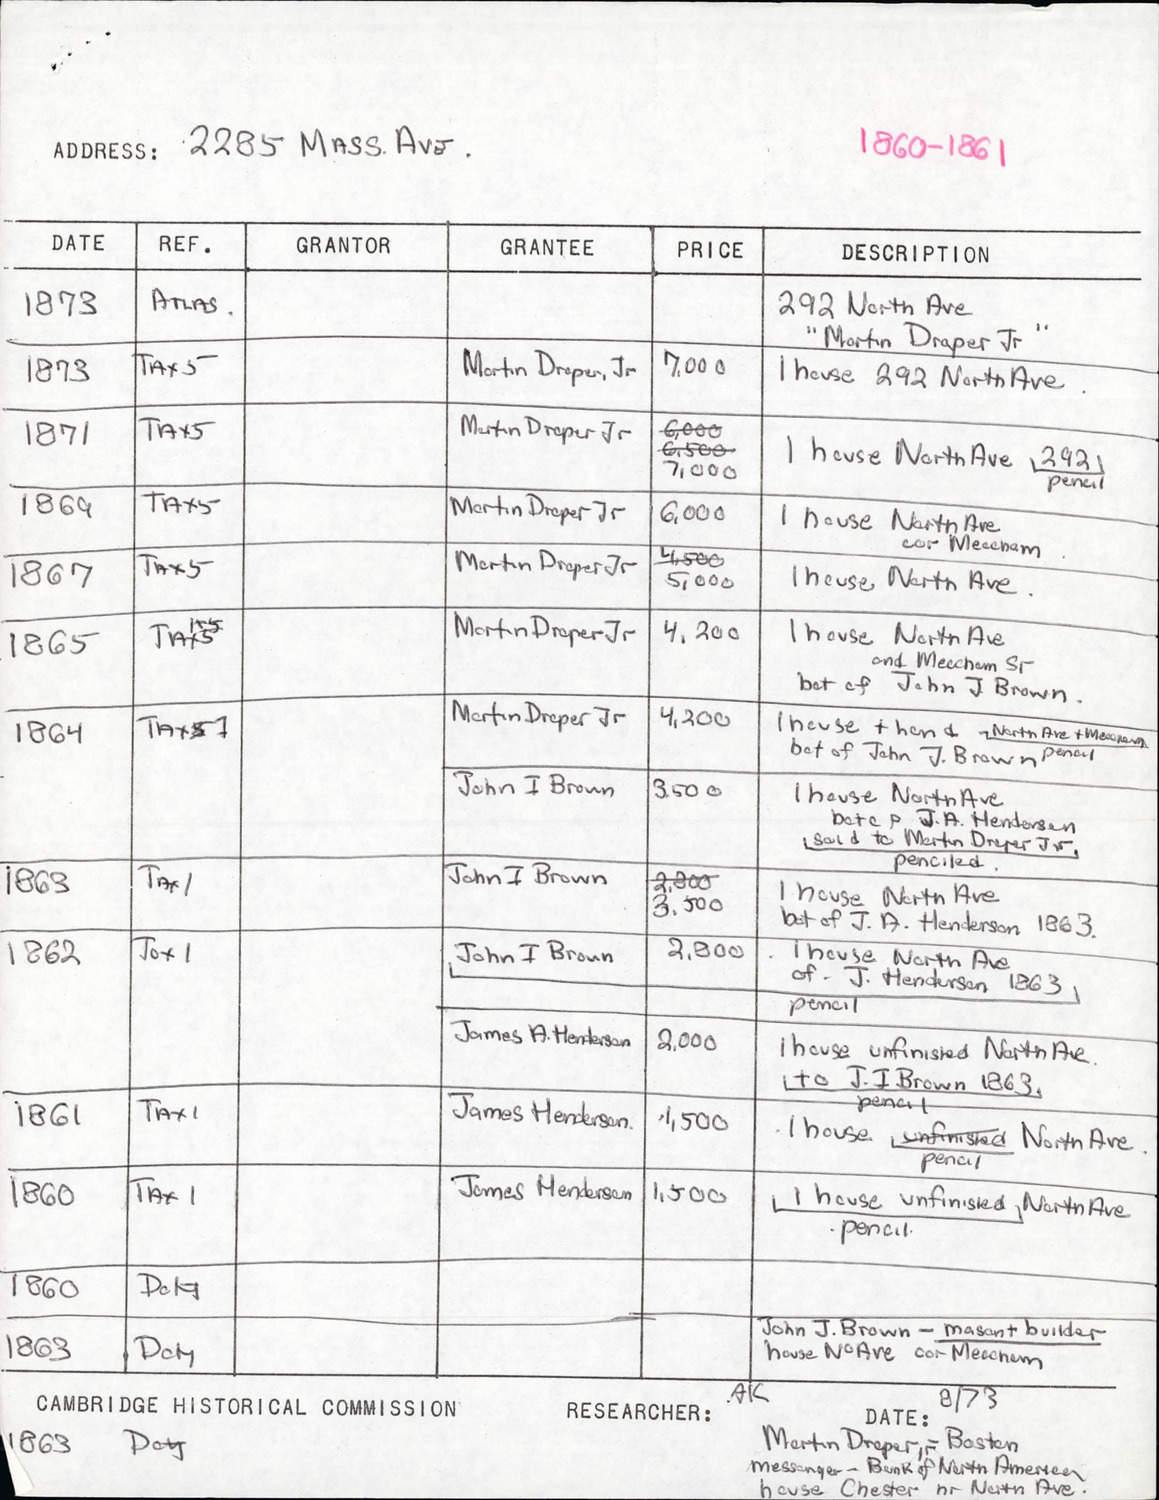 ADDRESS: 2285 MASS. AVE. 1860-1861
DATE REF. GRANTOR GRANTEE PRICE DESCRIPTION
1873 ATLAS. 292 North Ave
"Martin Draper Jr"
1873 TAX5 Martin Draper, Jr 7,000 1 house 292 North Ave.
1871 TAX5 Martin Draper Jr 6,000
6,500
7,000 1 house North Ave 292
pencil
1869 TAX5 Martin Draper Jr 6,000 1 house North Ave
cor Meacham
1867 TAX5 Martin Draper Jr 4,500
5,000 1 house, North Ave.
1865 TAX5 Martin Draper Jr 4,200 1 house North Ave
and Meacham St
bot of John J Brown.
1864 TAX 1 Martin Draper Jr 4,200 1 house + land North Ave + Meacham
bot of John J. Brown pencil
John I Brown 3500 1 house North Ave
bot of J.A. Henderson
sold to Martin Draper Jr.
penciled.
1863 TAX 1 John I Brown 2,800
3,500 1 house North Ave
bot of J. A. Henderson 1863.
1862 Tax 1 John I Brown 2,800 1 house North Ave
of J. Henderson 1863
pencil
James A. Henderson 2,000 1 house unfinished North Ave.
to J. I Brown 1863.
pencil
1861 TAX 1 James Henderson. 1,500 1 house unfinished North Ave.
pencil
1860 TAX 1 James Henderson 1,500 1 house unfinished, North Ave
pencil.
1860 Dcty
1863 Dcty John J. Brown - mason + builder
house No Ave cor Meacham
CAMBRIDGE HISTORICAL COMMISSION RESEARCHER: AK DATE: 8/73
1863 Dcty Martin Draper, Jr - Boston
messenger - Bank of North American
house Chester nr North Ave.